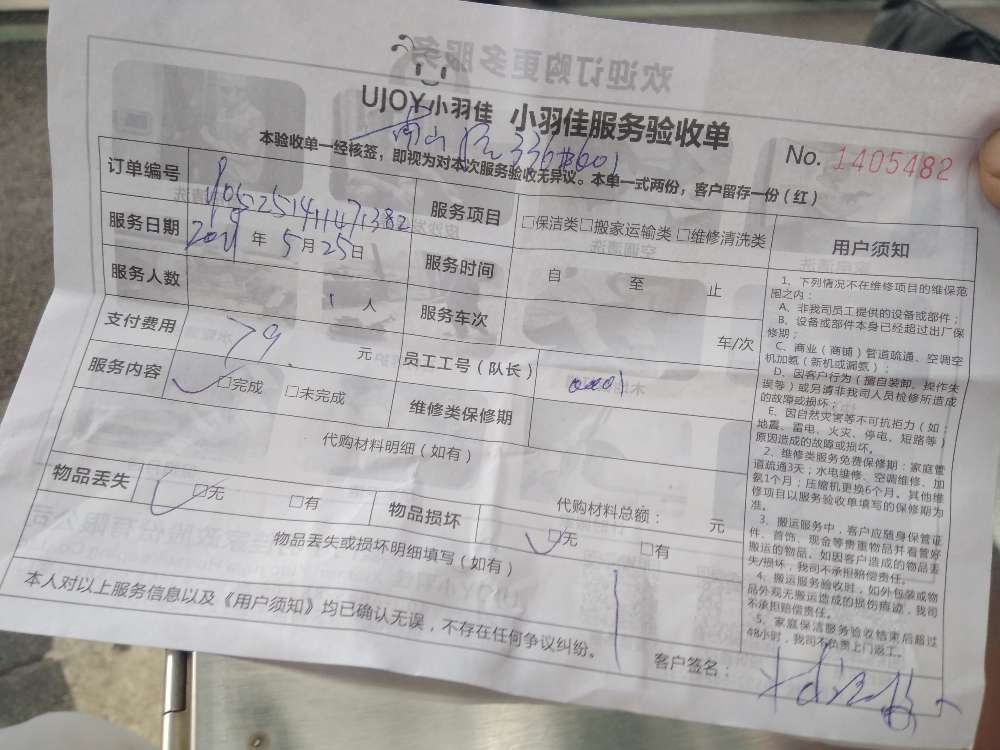 UJOY小羽佳 小羽佳服务验收单
No. 1405482
本验收单一经核签，即视为对本次服务验收无异议。本单一式两份，客户留存一份（红）
订单编号
服务项目 □保洁类□搬家运输类 □维修清洗类
服务日期 2021年5月25日
服务时间 自 至 止
服务人数 1人
服务车次 车/次
支付费用 79 元
员工工号（队长）
服务内容 □完成 □未完成
维修类保修期
代购材料明细（如有）
代购材料总额： 元
物品丢失 □无 □有
物品损坏 □无 □有
物品丢失或损坏明细填写（如有）
本人对以上服务信息以及《用户须知》均已确认无误，不存在任何争议纠纷。
客户签名：
用户须知
1、下列情况不在维修项目的维保范
围之内：
A、非我司员工提供的设备或部件；
B、设备或部件本身已经超过出厂保
修期；
C、商业（商铺）管道疏通、空调空
机加氨（新机或漏氨）；
D、因客户行为（擅自装卸、操作失
误等）或另请非我司人员检修所造成
的故障或损坏；
E、因自然灾害等不可抗拒力（如：
地震、雷电、火灾、停电、短路等）
原因造成的故障或损坏。
2、维修类服务免费保修期：家庭管
道疏通3天；水电维修、空调维修、加
氨1个月；压缩机更换6个月。其他维
修项目以服务验收单填写的保修期为
准。
3、搬运服务中，客户应随身保管证
件、首饰、现金等贵重物品并看管好
搬运的物品。如因客户造成的物品丢
失/损坏，我司不承担赔偿责任。
4、搬运服务验收时，如外包装或物
品外观无搬运造成的损伤痕迹，我司
不承担赔偿责任。
5、家庭保洁服务验收结束后超过
48小时，我司不负责上门返工。
欢迎订购更多服务